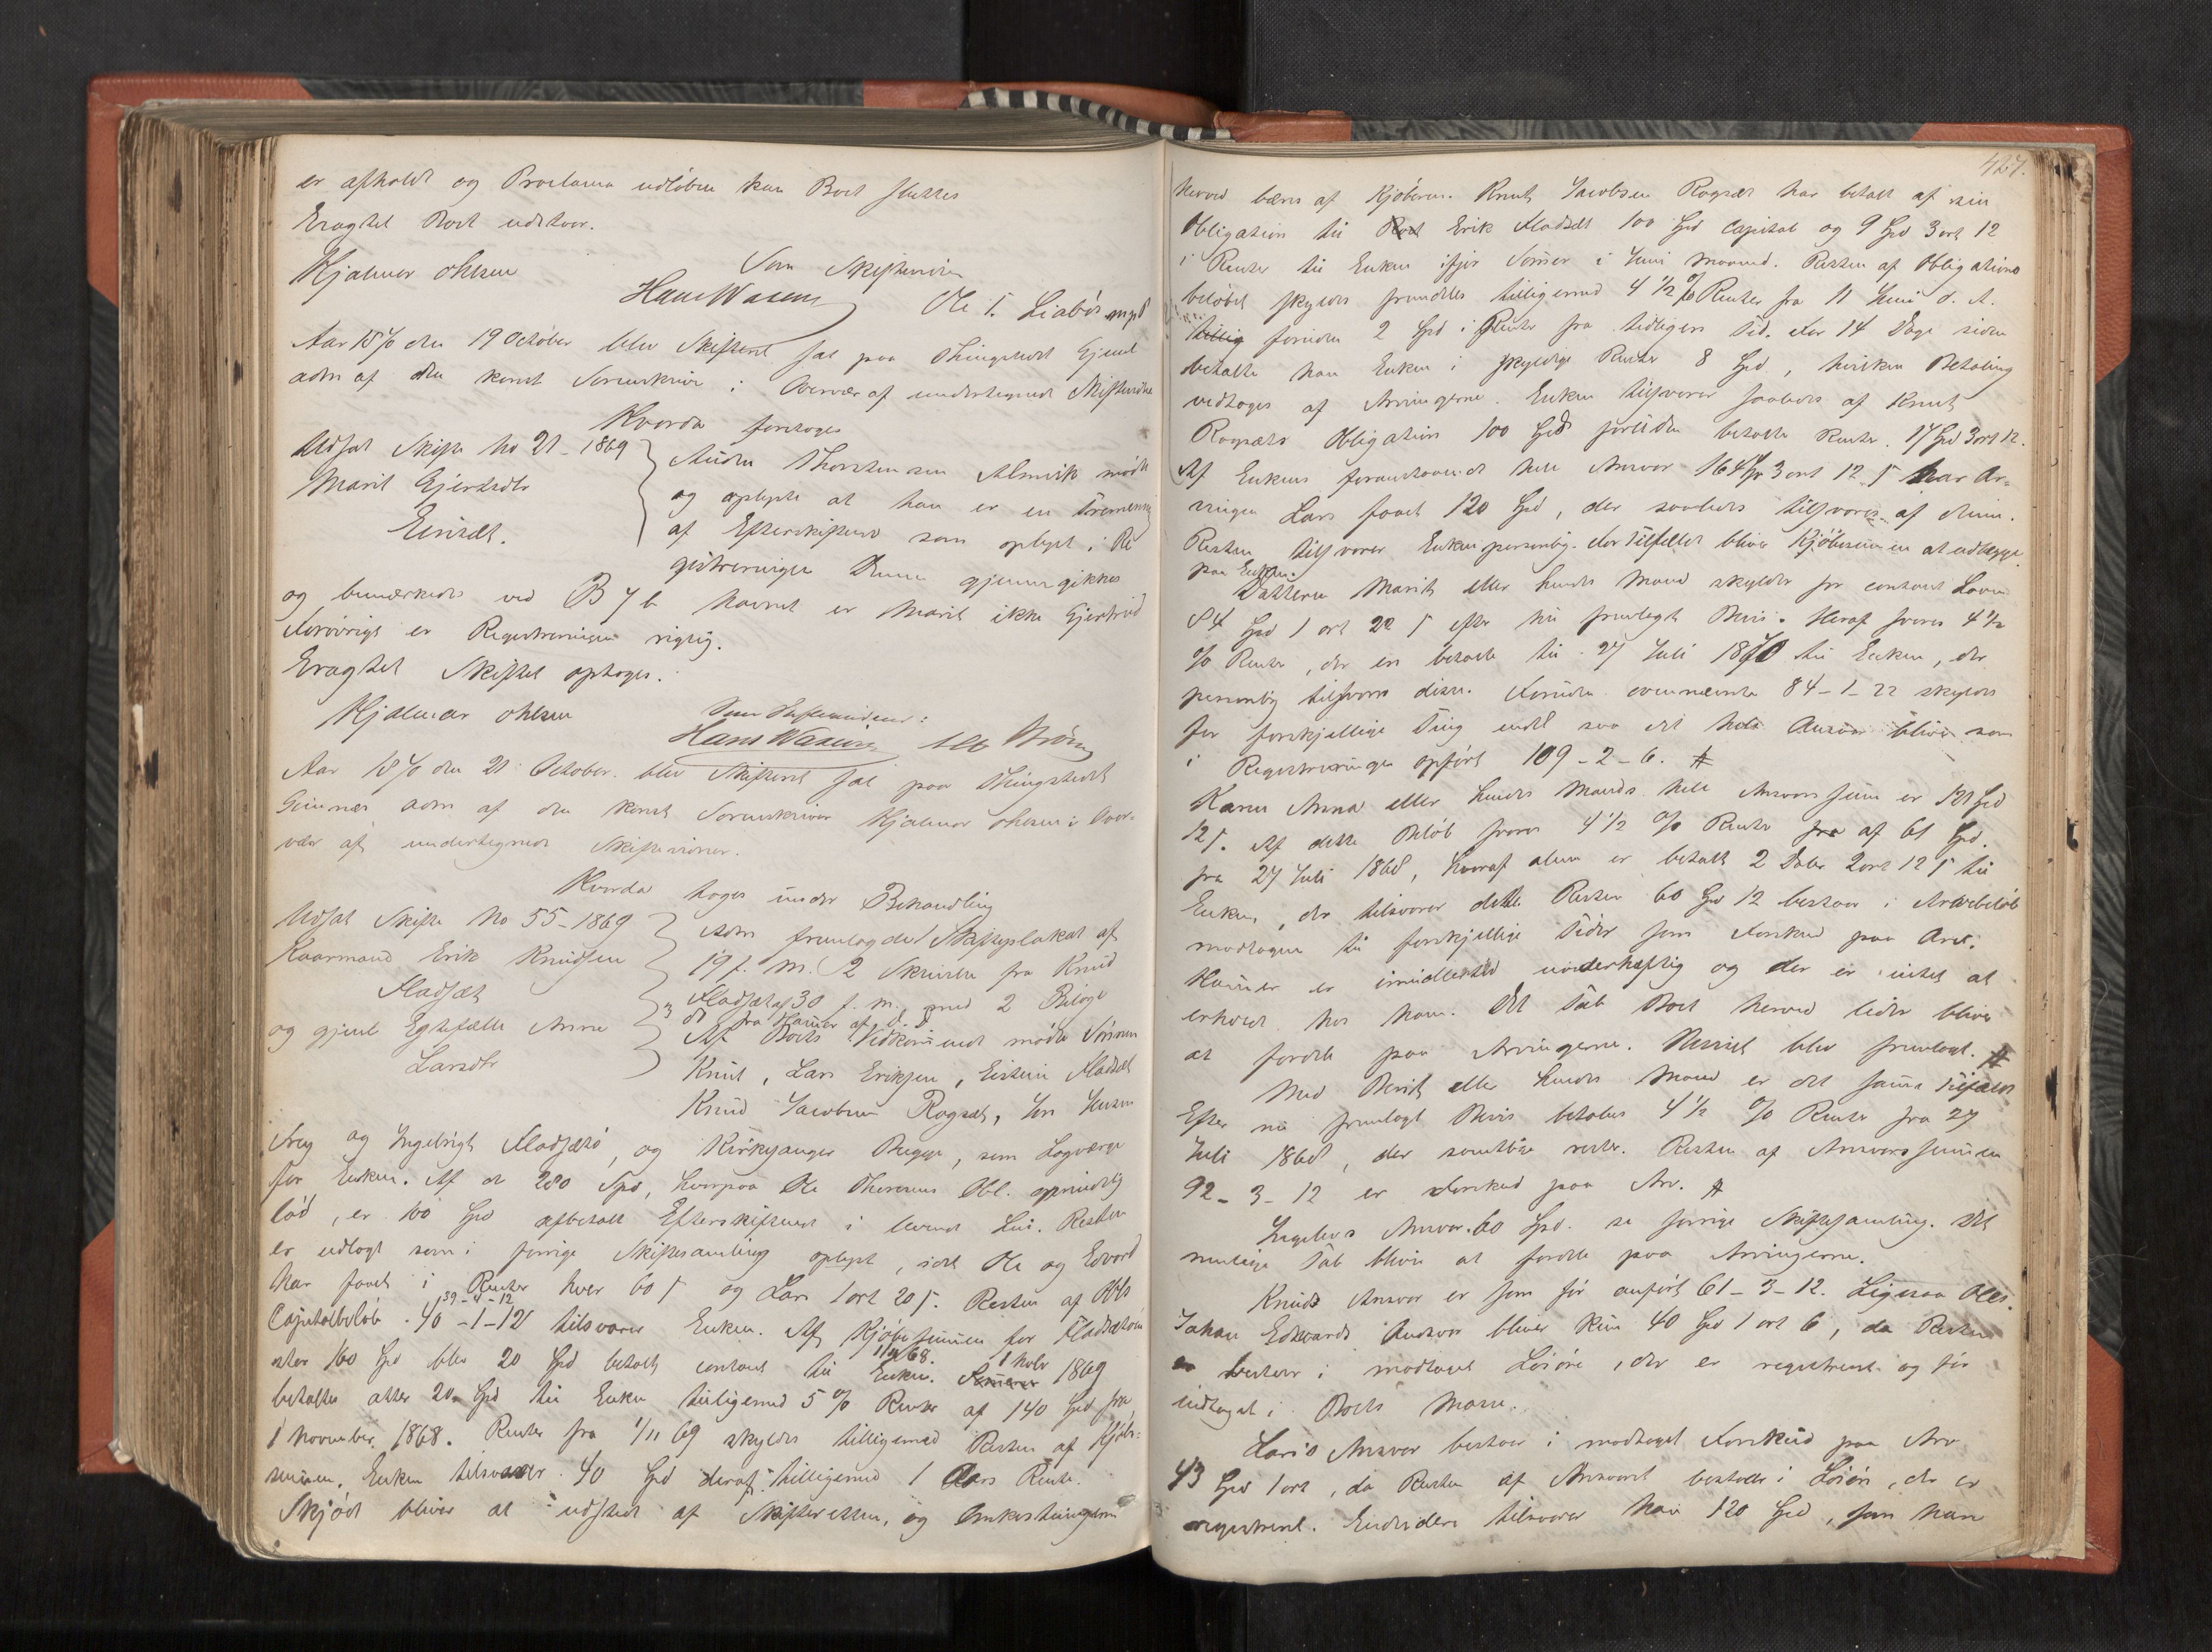 er afholdt og Proclama udløben kan Boet sluttes
Eragtet Boet udstaar.
Hjalmar Ohlsen
Som Skiftevidner
Hans Wasenn Ole T.
Aar 1870 den 19 October blev Skifteret sat paa Thingstedet
adm af den const Sorenskriver i Overvær af undertegnede Skiftevidner
Hvorda foretoges
Udsat Skifte No 21 - 1869
Marit Gjertsdtr
Anders Thorstensen Almvik mødte
og oplyste at han er en
af som oplyst i Re
gistreringen Denne gjennemgikkes
og bemærkedes ved B 7 b Navnet er Marit ikke Gjertrud
Forøvrigt er Registreringen rigtig.
Eragtet Skiftet optoges.
Hjalmar Ohlsen
Som Skiftevidner:
Hans Wasenn
Aar 1870 den 21 October blev Skifteret sat paa Thingstedet
adm af den const Sorenskriver Hjalmar Ohlsen i Over-
vær af undertegnede Skiftevidner.
Hvorda toges under Behandling
Udsat Skifte No 55 - 1869
Kaarmand Erik Knudsen
Fladsæt
og gjenl Egtefælle Anne
Larsdtr
Adm fremlagde 1 Skifteplakat af
19 f. M. 2 Skrivelse fra Knud
Fladsæt af 30 f. M. med 2 Bilage
3 dt fra Hamer af d. d.
Af Boets Vedkommende mødte Sønnen
Knut, Lars Eriksen, Eistein Fladsæt
Knud Jacobsen Rogsæt, Jon Jensen
og Ingebrigt Fladsæt, og Kirkesanger Bugge, som Lagværge
for Enken. Af de 280 Spd, hvorpaa Ole Obl. oprindelig
lød, er 100 Spd afbetalt i levende Live. Resten
er udlagt som i forrige Skiftesamling oplyst, idet Ole og Edvard
har faaet i Renter hver 60 s og Lars 1 ort 20 s. Resten af Obls
39 - 4 - 12
Capitalbeløb 40 - 1 - 12 tilsvarer Enken. Af Kjøbesummen for
stor 160 Spd blev 20 Spd betalt contant til Enken 1/11 68. 1 Nobr 1869
betaltes atter 20 Spd til Enken tilligemed 5 % Renter af 140 Spd fra
1 November 1868. Renter fra 1/11 69 skyldes tilligemed Resten af Kjøbe-
summen. Enken tilsvarer 40 Spd deraf tilligemed 1 Aars Rente.
Skjøde bliver at udstede af Skifteretten, og Omkostningerne
427.
herved bæres af Kjøberen. Knut Jacobsen Rogsæt har betalt af sin
Obligation til Erik Fladsæt 100 Spd Capital og 9 Spd 3 ort 12
i Renter til Enken ifjor Sommer i Juni Maaned. Resten af Obligations
beløbet skyldes fremdeles tilligemed 4 1/2 % Renter fra 11 Juni d. A.
foruden 2 Spd i Renter fra tidligere Tid. For 14 Dage siden
betalte han Enken i skyldige Renter 8 Spd, hvilken Betaling
vedtoges af Arvingerne. Enken tilsvarer saaledes af Knut
Rogsæts Obligation 100 Spd foruden betalte Renter 17 Spd 3 ort 12.
Af Enkens foranstaaende hele Ansvar 164 Sp 3 ort 12 s har Ar-
vingen Lars faaet 120 Spd, der saaledes tilsvares af denne.
Resten tilsvarer Enken personlig. For Tilfældet bliver Kjøbesummen at udlægge
paa Enken.
Datteren Marit eller hendes Mand skylder for contant Laan
84 Spd 1 ort 22 s efter nu fremlagt Bevis. Heraf svares 4 1/2
% Renter, der er betalt til 27 Juli 1870 til Enken, der
personlig tilsvarer disse. Foruden ovennævnte 84 - 1 - 22 skyldes
for forskjellige Ting endel saa det hele Ansvar bliver som
i Registreringen opført 109 - 2 - 6. #
Karen Anna eller hendes Mands hele Ansvarssum er 121 Spd
12 s. Af dette Beløb svares 4 1/2 % Rente af 61 Spd.
fra 27 Juli 1868, hvoraf alene er betalt 2 Daler 2 ort 12 s til
Enken, der tilsvarer dette. Resten 60 Spd 12 bestaar i Arvebeløb
modtagne til forskjellige Tider som Forskud paa Arv.
Hamer er imidlertid uvederhæftig og der er intet at
erholde hos ham. Det Tab Boet herved lider bliver
at fordele paa Arvingerne. Beviset blev fremlagt. #
Med Berit eller hendes Mand er det samme Tilfælde
Efter nu fremlagt Bevis betales 4 1/2 % Rente fra 27
Juli 1868, der samtlige rester. Resten af Ansvarssummen
92 - 3 - 12 er Forskud paa Arv. #
Ingebors Ansvar 60 Spd. se forrige Skiftesamling. Det
mulige Tab bliver at fordele paa Arvingerne.
Knuds Ansvar er som før anført 61 - 3 - 12. Ligesaa Oles.
Johan Edevards Ansvar bliver kun 40 Spd 1 ort 6, da Resten
bestaar i modtaget Løsøre, der er registreret og før
indtaget i Boets Masse.
Laris Ansvar bestaar i modtaget Forskud paa Arv
43 Spd 1 ort, da Resten af Ansvaret bestaar i Løsøre, der er
registreret. Endvidere tilsvarer han 120 Spd, som han